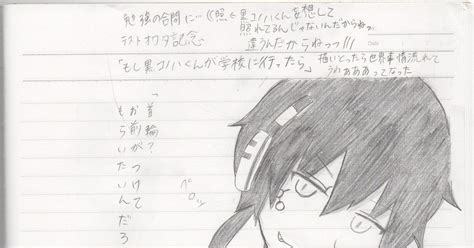 勉強の合間に…((照← 黒コノハくんを想して
照れてるんじゃないんだからねっ
テストオワタ記念
違うんだからねっっ!!!
Date
「もし黒コノハくんが学校に行ったら」
描いとったら世界事情流れて
うわぁああってなった
「首輪?
ペロッ